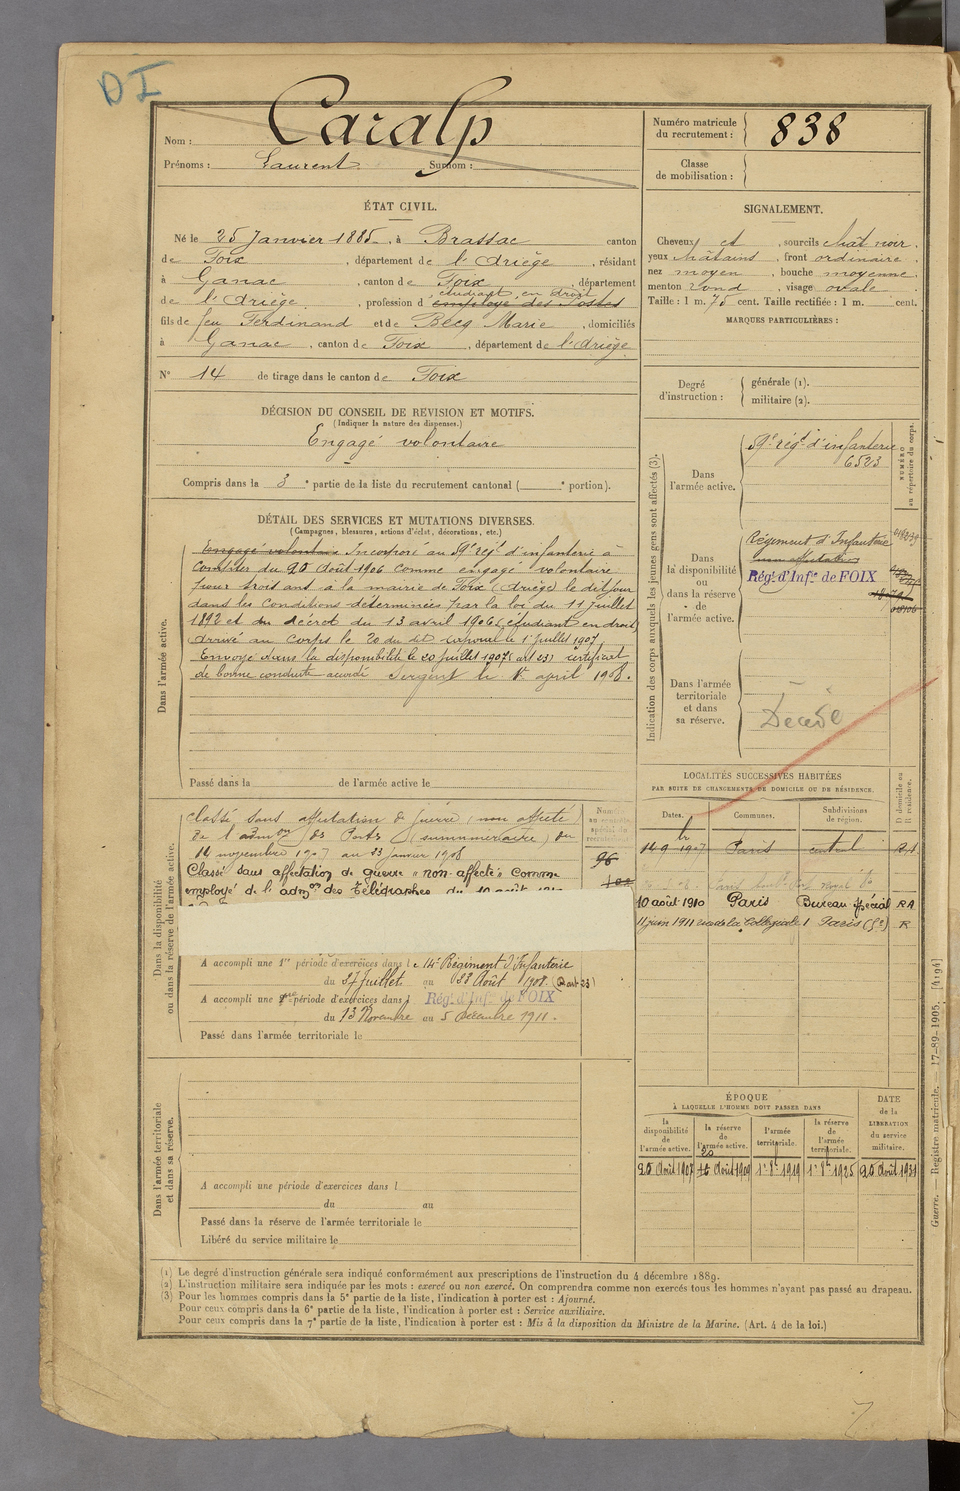 DI
Nom : Caralp
Prénoms : Laurent Surnom :
Numéro matricule du recrutement : 838
Classe de mobilisation :
ÉTAT CIVIL.
Né le 25 Janvier 1885, à Brassac canton
de Foix, département de l'Ariège, résidant
à Ganac, canton de Foix, département
de l'Ariège, profession d'étudiant en droit employé des Postes
fils de feu Ferdinand et de Becq Marie, domiciliés
à Ganac, canton de Foix, département de l'Ariège
N° 14 de tirage dans le canton de Foix
DÉCISION DU CONSEIL DE REVISION ET MOTIFS.
(Indiquer la nature des dispenses.)
Engagé volontaire
Compris dans la 3e partie de la liste du recrutement cantonal ( e portion).
SIGNALEMENT.
Cheveux et, sourcils chât noir.
yeux châtains, front ordinaire
nez moyen, bouche moyenne
menton rond, visage ovale
Taille : 1 m. 75 cent. Taille rectifiée : 1 m. cent.
MARQUES PARTICULIÈRES :
Degré d'instruction :
générale (1).
militaire (2).
DÉTAIL DES SERVICES ET MUTATIONS DIVERSES.
(Campagnes, blessures, actions d'éclat, décorations, etc.)
Dans l'armée active.
Engagé volontaire Incorporé au 59e régt d'infanterie à
compter du 20 Août 1906 comme engagé volontaire
pour trois ans à la mairie de Foix (Ariège) le dit jour
dans les conditions déterminées par la loi du 11 juillet
1892 et du décret du 13 avril 1906 (étudiant en droit)
Arrivé au corps le 20 du dit caporal le 1er juillet 1907
Envoyé dans la disponibilité le 20 juillet 1907 (art 23) certificat
de bonne conduite accordé Sergent le 1er avril 1908.
Passé dans la de l'armée active le
Indication des corps auxquels les jeunes gens sont affectés (3).
NUMÉRO au répertoire du corps.
Dans l'armée active.
59e régt d'infanterie
6523
Dans la disponibilité ou dans la réserve de l'armée active.
Régiment d'Infanterie
Régt d'Infie de FOIX
Dans l'armée territoriale et dans sa réserve.
Décédé
Dans la disponibilité ou dans la réserve de l'armée active.
Classé sans affectation de guerre (non affecté)
de l'admon des Postes (surnuméraire) du
14 novembre 1907 au 23 janvier 1908
Classé sans affectation de guerre "non affecté" comme
employé de l'admon des Télégraphes du 10 août 1910
96
A accompli une 1re période d'exercices dans le 14e Régiment d'Infanterie
du 27 Juillet au 23 Août 1908 (art 23)
A accompli une 2me période d'exercices dans l Régt d'Infie de FOIX
du 13 Novembre au 5 décembre 1911.
Passé dans l'armée territoriale le
LOCALITÉS SUCCESSIVES HABITÉES
PAR SUITE DE CHANGEMENTS DE DOMICILE OU DE RÉSIDENCE.
Dates. Communes. Subdivisions de région. D domicile ou R résidence.
14 9bre 1907 Paris central
10 août 1910 Paris Bureau spécial RA
11 juin 1911 rue de la Collégiale 1 Paris (5e) R
ÉPOQUE
À LAQUELLE L'HOMME DOIT PASSER DANS
la disponibilité de l'armée active. la réserve de l'armée active. l'armée territoriale. la réserve de l'armée territoriale. DATE de la LIBÉRATION du service militaire.
20 Août 1907 20 Août 1909 1er 8bre 1919 1er 8bre 1925 20 Août 1931
Dans l'armée territoriale et dans sa réserve.
A accompli une période d'exercices dans l
du au
Passé dans la réserve de l'armée territoriale le
Libéré du service militaire le
(1) Le degré d'instruction générale sera indiqué conformément aux prescriptions de l'instruction du 4 décembre 1889.
(2) L'instruction militaire sera indiquée par les mots : exercé ou non exercé. On comprendra comme non exercés tous les hommes n'ayant pas passé au drapeau.
(3) Pour les hommes compris dans la 5e partie de la liste, l'indication à porter est : Ajourné.
Pour ceux compris dans la 6e partie de la liste, l'indication à porter est : Service auxiliaire.
Pour ceux compris dans la 7e partie de la liste, l'indication à porter est : Mis à la disposition du Ministre de la Marine. (Art. 4 de la loi.)
Guerre. — Registre matricule. — 17-89-1905. [4194]